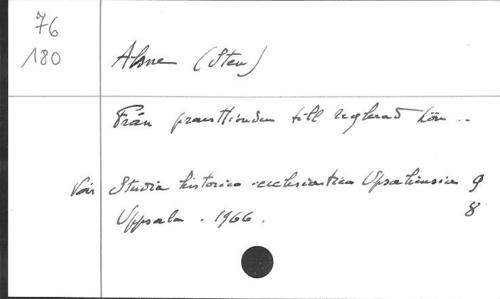 76
180
Alsne (Sten)
Från praesttionden till reglerad lön ..
Voir Studia historico-ecclesiastica Upsaliensia 9
Uppsala . 1966. 8